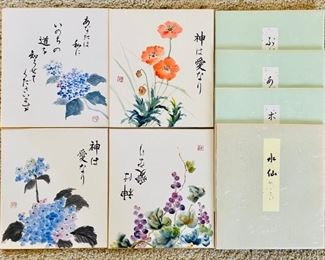 あなたは
私に
いのちの
道を
知らせて
くださいます
神は愛なり
神は
愛なり
神は
愛なり
ぶ
あ
ポ
水仙